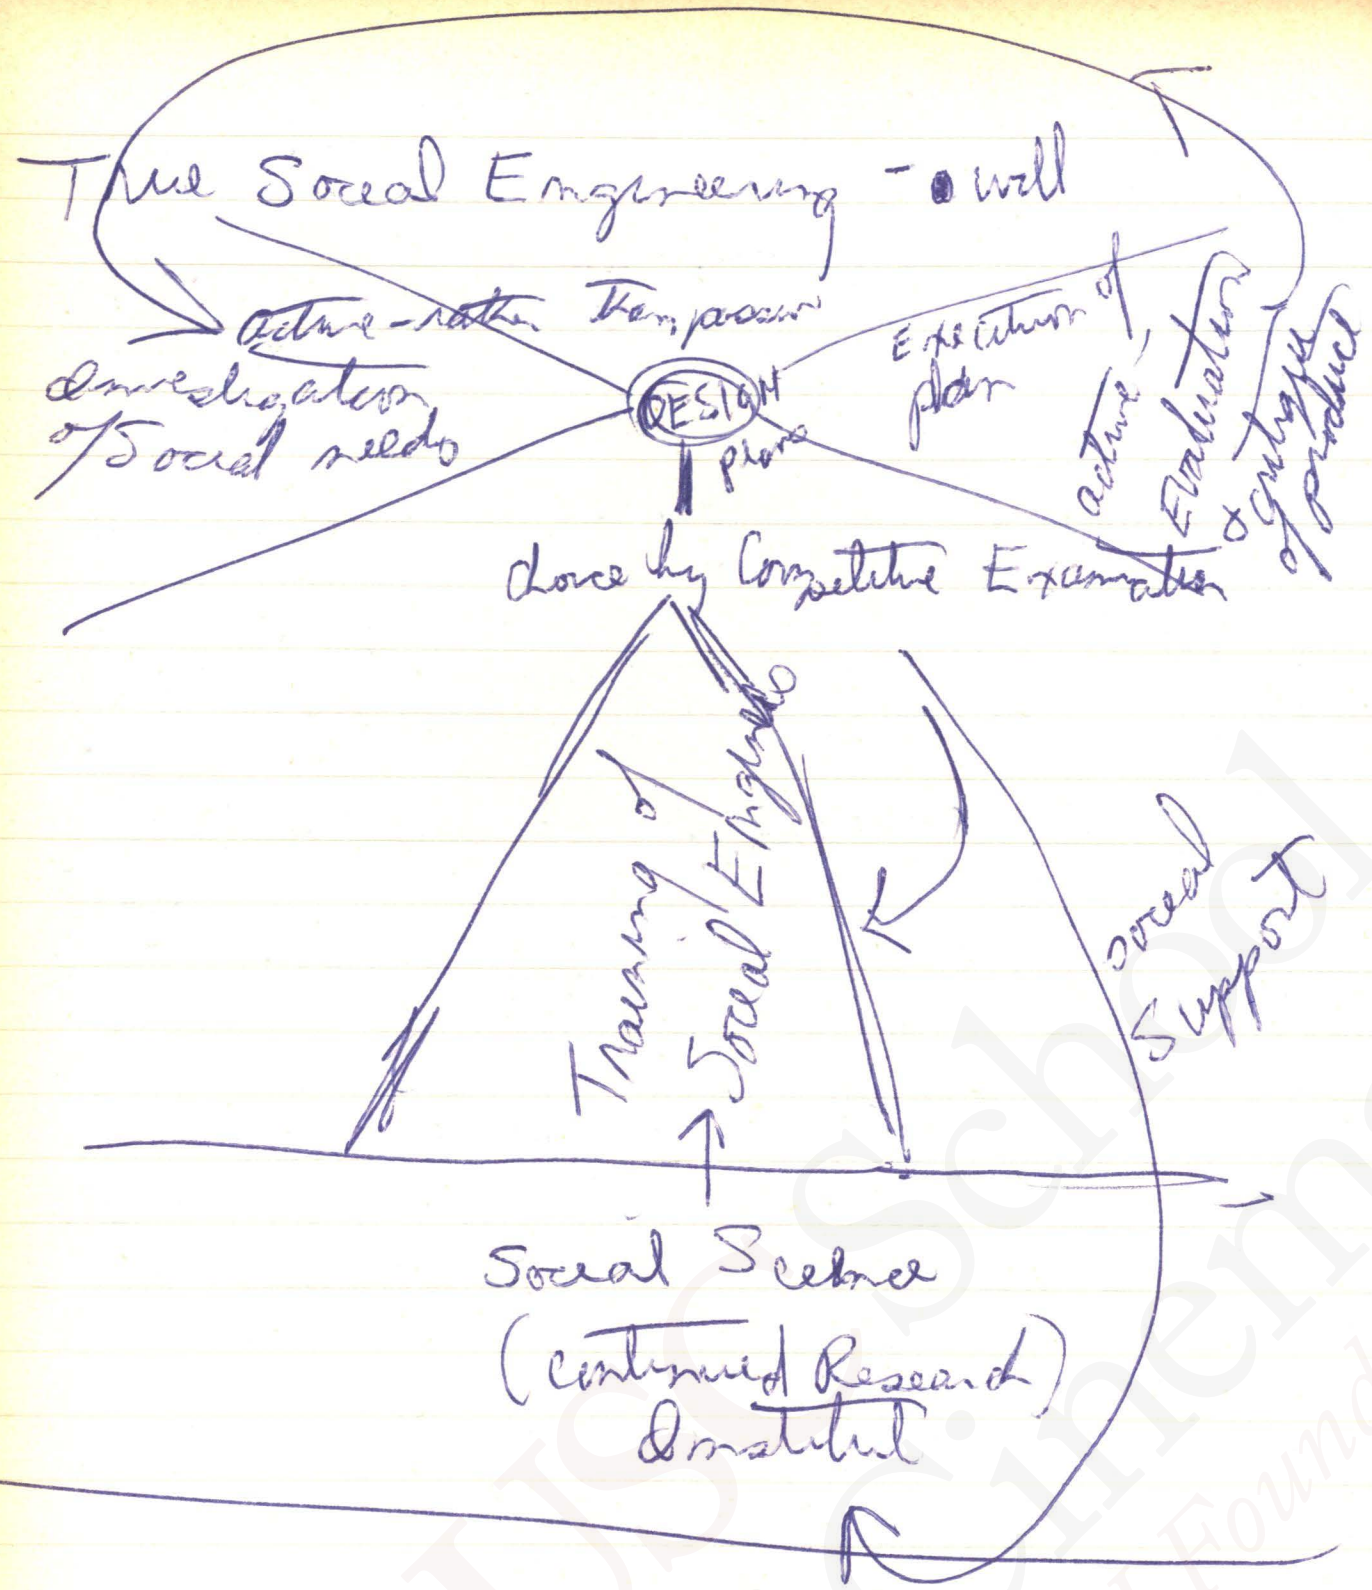 True Social Engineering - will
active - rather than passive
investigation
of Social needs
DESIGN
plans
Execution of
plan
active,
Evaluation
& critique
of product
choice by Competitive Examination
Training of
Social Engineers
social
support
Social Science
(continued Research)
Institute
USC School
Cinem
Found